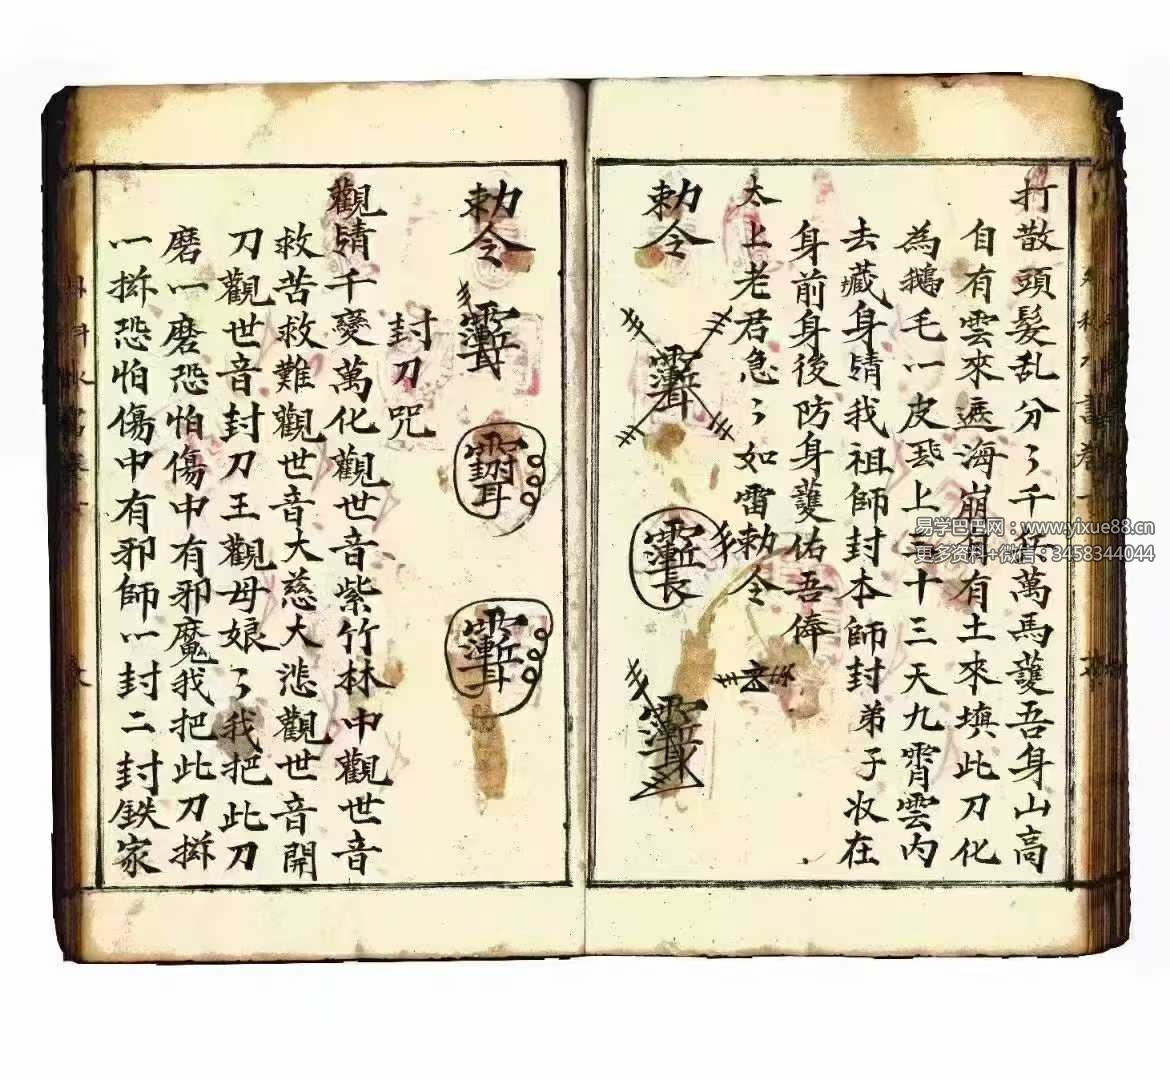 打散頭髮乱分〻千兵萬馬護吾身山高
自有雲來遮海崩自有土來填此刀化
為鵝毛一皮飛上三十三天九霄雲内
去藏身請我祖師封本師封弟子收在
身前身後防身護佑吾俸
太上老君急〻如雷勅令
勅令
勅令
封刀咒
觀請千變萬化觀世音紫竹林中觀世音
救苦救難觀世音大慈大悲觀世音開
刀觀世音封刀王觀母娘〻我把此刀
磨一磨恐怕傷中有邪魔我把此刀搟
一搟恐怕傷中有邪師一封二封鉄家
易学巴巴网：www.yixue88.cn
更多资料+微信：3458344044